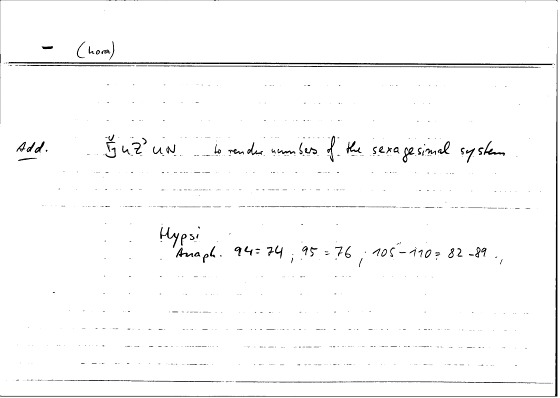 – (hora)
Add. to render numbers of the sexagesimal system
Hypsi
Anaph. 94 = 74 ; 95 = 76 ; 105–110 = 82–89 .,